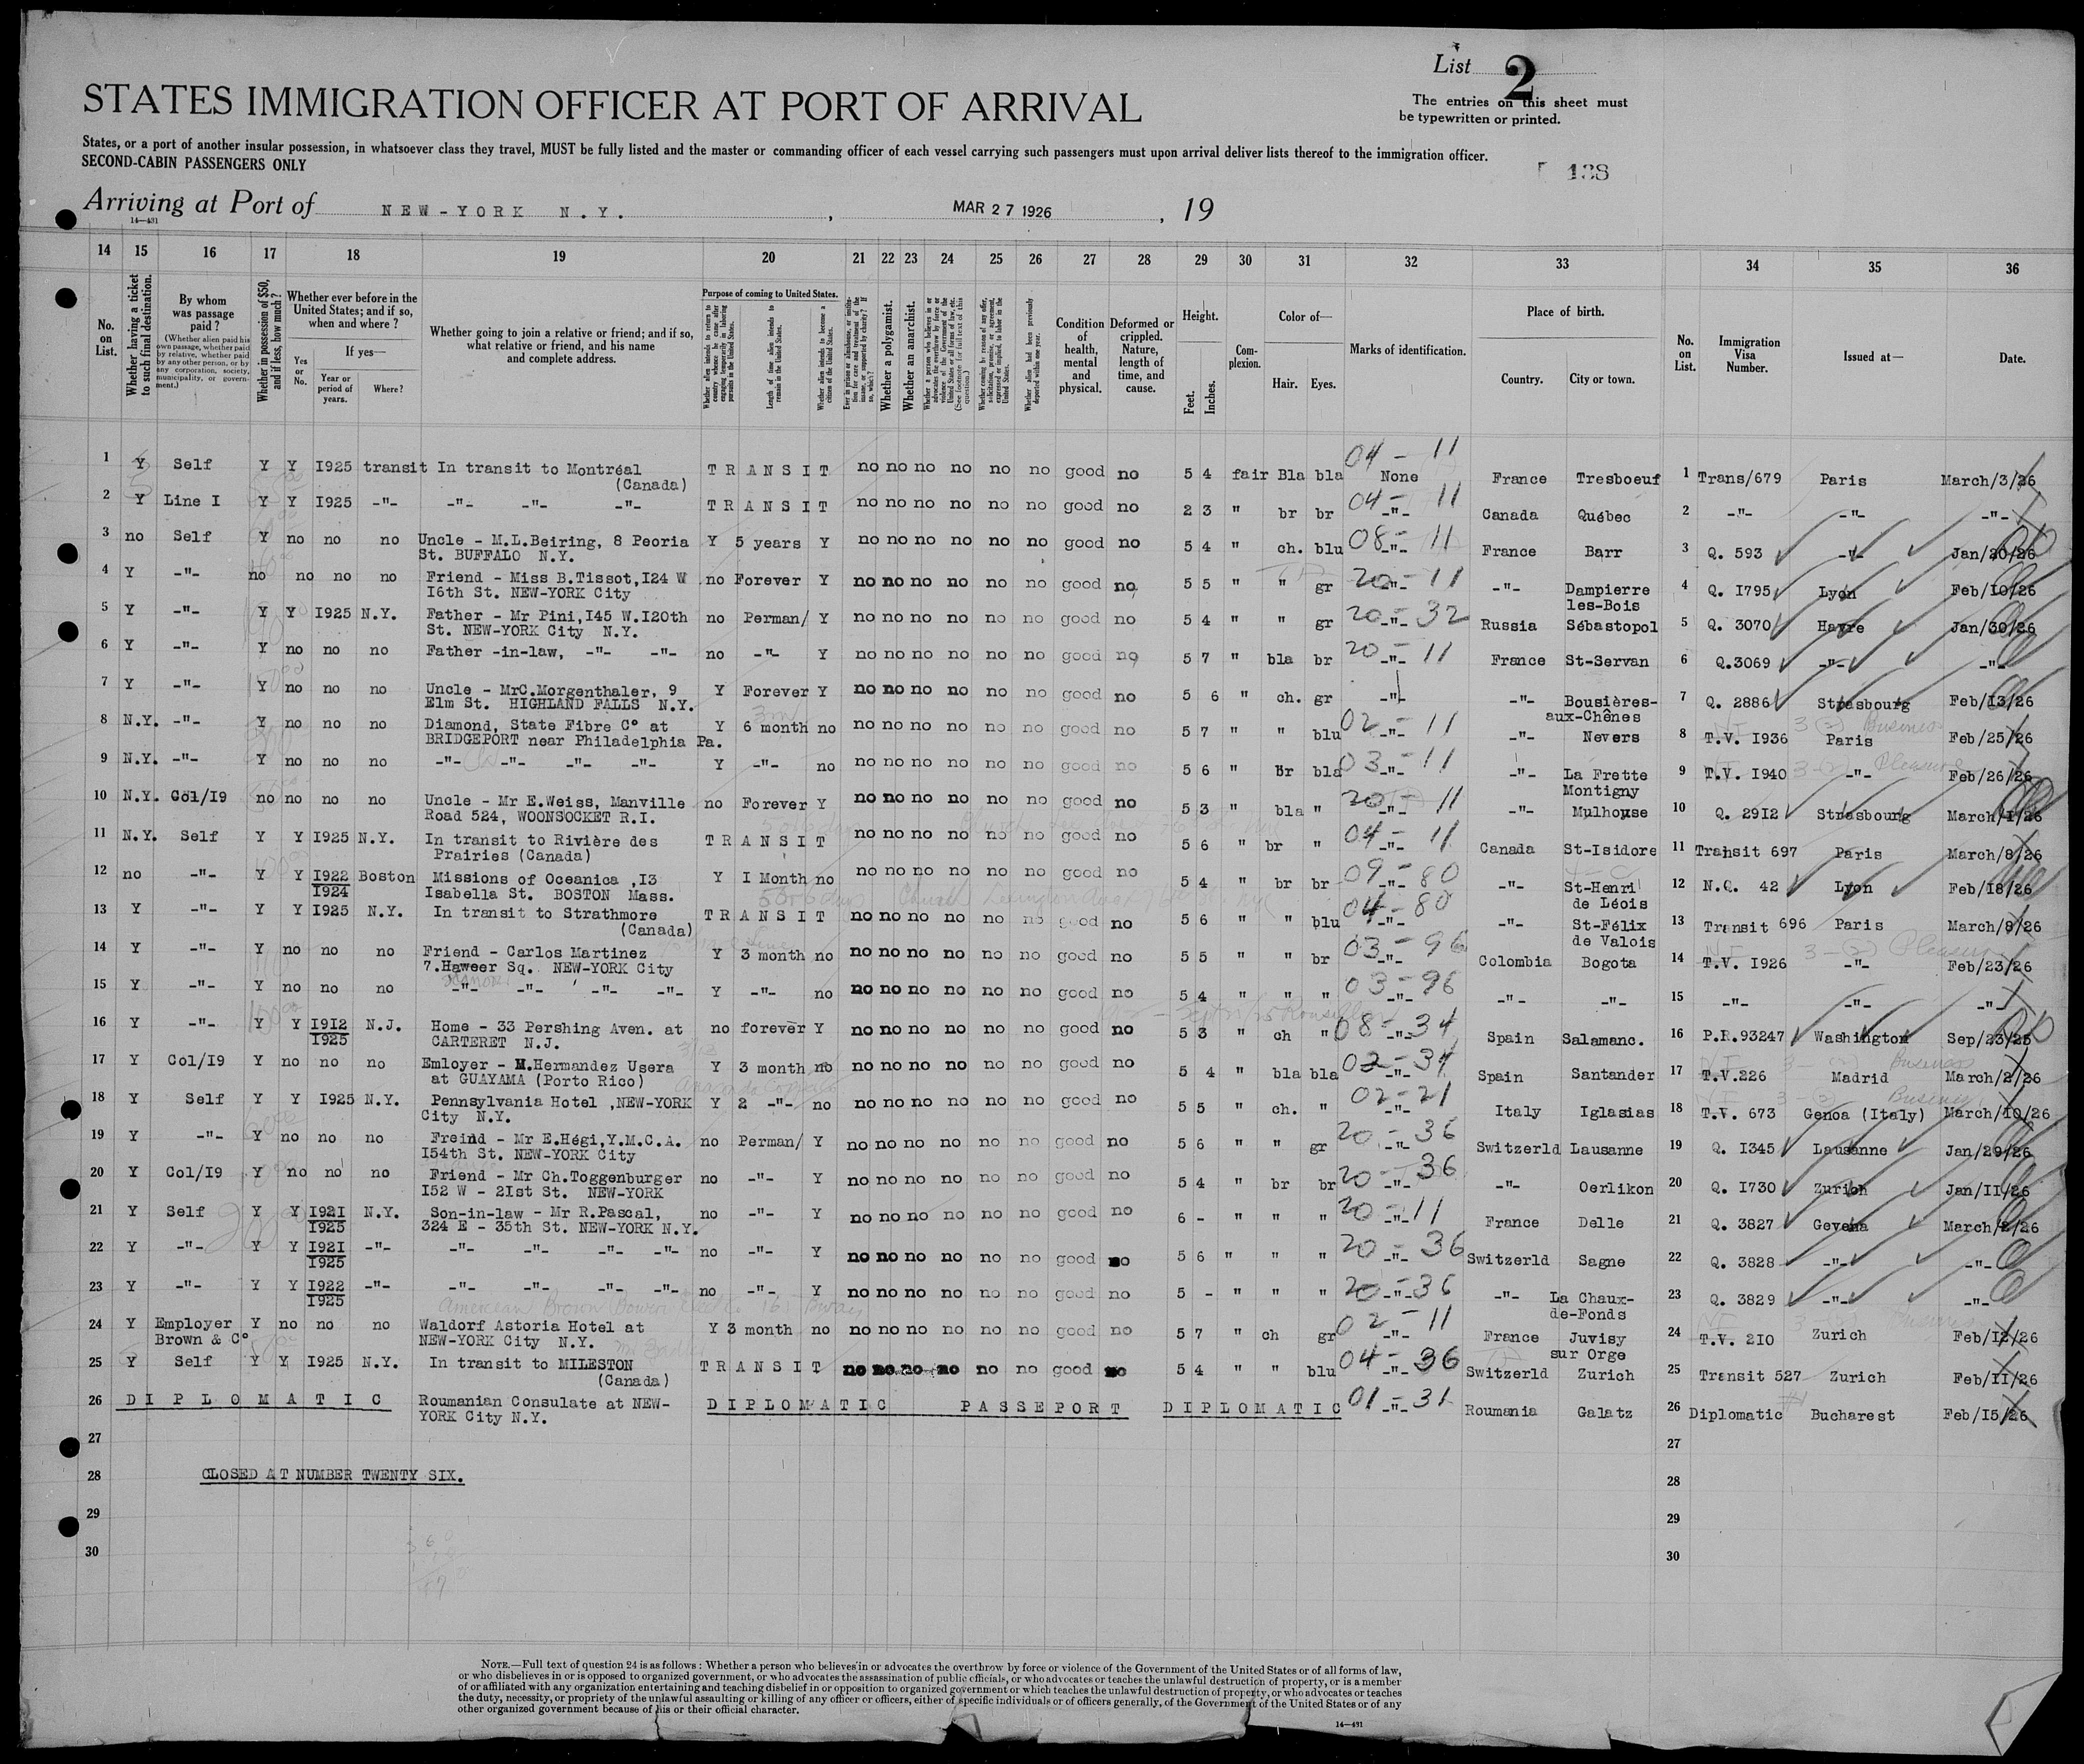 List 2
The entries on this sheet must
be typewritten or printed.
STATES IMMIGRATION OFFICER AT PORT OF ARRIVAL
States, or a port of another insular possession, in whatsoever class they travel, MUST be fully listed and the master or commanding officer of each vessel carrying such passengers must upon arrival deliver lists thereof to the immigration officer.
SECOND-CABIN PASSENGERS ONLY
138
Arriving at Port of NEW-YORK N.Y. , MAR 27 1926 , 19
14—431
14 15 16 17 18 19 20 21 22 23 24 25 26 27 28 29 30 31 32 33 34 35 36
No. on List.
Whether having a ticket to such final destination.
By whom was passage paid?
(Whether alien paid his own passage, whether paid by relative, whether paid by any other person, or by any corporation, society, municipality, or government.)
Whether in possession of $50, and if less, how much?
Whether ever before in the United States; and if so, when and where?
Yes or No.
If yes—
Year or period of years.
Where?
Whether going to join a relative or friend; and if so, what relative or friend, and his name and complete address.
Purpose of coming to United States.
Whether alien intends to return to country whence he came after engaging temporarily in laboring pursuits in the United States.
Length of time alien intends to remain in the United States.
Whether alien intends to become a citizen of the United States.
Ever in prison or almshouse, or institution for care and treatment of the insane, or supported by charity? If so, which?
Whether a polygamist.
Whether an anarchist.
Whether a person who believes in or advocates the overthrow by force or violence of the Government of the United States or all forms of law, etc. (See footnote for full text of this question.)
Whether coming by reason of any offer, solicitation, promise, or agreement, expressed or implied, to labor in the United States.
Whether alien had been previously deported within one year.
Condition of health, mental and physical.
Deformed or crippled. Nature, length of time, and cause.
Height.
Feet. Inches.
Complexion.
Color of—
Hair. Eyes.
Marks of identification.
Place of birth.
Country. City or town.
No. on List.
Immigration Visa Number.
Issued at—
Date.
1 Y Self Y Y I925 transit In transit to Montréal TRANSIT no no no no no no good no 5 4 fair Bla bla 04 - 11 None France Tresboeuf 1 Trans/679 Paris March/3/26
(Canada)
2 Y Line I Y Y I925 -"- -"- -"- -"- TRANSIT no no no no no no good no 2 3 " br br 04 - 11 -"- Canada Québec 2 -"- -"- -"-
3 no Self Y no no no Uncle - M.L.Beiring, 8 Peoria Y 5 years Y no no no no no no good no 5 4 " ch. blu 08 - 11 -"- France Barr 3 Q. 593 -"- Jan/20/26
St. BUFFALO N.Y.
4 Y -"- no no no no Friend - Miss B.Tissot,I24 W no Forever Y no no no no no no good no 5 5 " " gr 20 - 11 -"- -"- Dampierre 4 Q. I795 Lyon Feb/I0/26
I6th St. NEW-YORK City les-Bois
5 Y -"- Y Y I925 N.Y. Father - Mr Pini,I45 W.I20th no Perman/ Y no no no no no no good no 5 4 " " gr 20 - 32 -"- Russia Sébastopol 5 Q. 3070 Havre Jan/30/26
St. NEW-YORK City N.Y.
6 Y -"- Y no no no Father -in-law, -"- -"- no -"- Y no no no no no no good no 5 7 " bla br 20 - 11 -"- France St-Servan 6 Q.3069 -"- -"-
7 Y -"- Y no no no Uncle - MrC.Morgenthaler, 9 Y Forever Y no no no no no no good no 5 6 " ch. gr -"- -"- Bousières- 7 Q. 2886 Strasbourg Feb/I3/26
Elm St. HIGHLAND FALLS N.Y. aux-Chênes
8 N.Y. -"- Y no no no Diamond, State Fibre C° at Y 6 month no no no no no no no good no 5 7 " " blu 02 - 11 -"- -"- Nevers 8 T.V. I936 Paris Feb/25/26
BRIDGEPORT near Philadelphia Pa. Business
9 N.Y. -"- Y no no no -"- -"- -"- -"- Y -"- no no no no no no no good no 5 6 " Br bla 03 - 11 -"- -"- La Frette 9 T.V. I940 -"- Feb/26/26
Montigny Pleasure
10 N.Y. Col/I9 no no no no Uncle - Mr E.Weiss, Manville no Forever Y no no no no no no good no 5 3 " bla " 20 - 11 -"- -"- Mulhouse 10 Q. 29I2 Strasbourg March/I/26
Road 524, WOONSOCKET R.I.
11 N.Y. Self Y Y I925 N.Y. In transit to Rivière des TRANSIT no no no no no no good no 5 6 " br " 04 - 11 -"- Canada St-Isidore 11 Transit 697 Paris March/8/26
Prairies (Canada)
12 no -"- Y Y I922 Boston Missions of Oceanica ,I3 Y I Month no no no no no no no good no 5 4 " br br 09 - 80 -"- -"- St-Henri 12 N.Q. 42 Lyon Feb/I8/26
I924 Isabella St. BOSTON Mass. de Léois
13 Y -"- Y Y I925 N.Y. In transit to Strathmore TRANSIT no no no no no no good no 5 6 " " blu 04 - 80 -"- -"- St-Félix 13 Transit 696 Paris March/8/26
(Canada) de Valois
14 Y -"- Y no no no Friend - Carlos Martinez Y 3 month no no no no no no no good no 5 5 " " br 03 - 96 -"- Colombia Bogota 14 T.V. I926 -"- Feb/23/26
7.Haweer Sq. NEW-YORK City Pleasure
15 Y -"- Y no no no -"- -"- -"- -"- Y -"- no no no no no no no good no 5 4 " " " 03 - 96 -"- -"- -"- 15 -"- -"- -"-
16 Y -"- Y Y I9I2 N.J. Home - 33 Pershing Aven. at no forever Y no no no no no no good no 5 3 " ch " 08 - 34 -"- Spain Salamanc. 16 P.R.93247 Washington Sep/23/25
I925 CARTERET N.J.
17 Y Col/I9 Y no no no Emloyer - M.Hermandez Usera Y 3 month no no no no no no no good no 5 4 " bla bla 02 - 34 -"- Spain Santander 17 T.V.226 Madrid March/2/26
at GUAYAMA (Porto Rico) Business
18 Y Self Y Y I925 N.Y. Pennsylvania Hotel ,NEW-YORK Y 2 -"- no no no no no no no good no 5 5 " ch. " 02 - 21 -"- Italy Iglasias 18 T.V. 673 Genoa (Italy) March/I0/26
City N.Y. Business
19 Y -"- Y no no no Freind - Mr E.Hégi,Y.M.C.A. no Perman/ Y no no no no no no good no 5 6 " " gr 20 - 36 -"- Switzerld Lausanne 19 Q. I345 Lausanne Jan/29/26
I54th St. NEW-YORK City
20 Y Col/I9 Y no no no Friend - Mr Ch.Toggenburger no -"- Y no no no no no no good no 5 4 " br br 20 - 36 -"- -"- Oerlikon 20 Q. I730 Zurich Jan/II/26
I52 W - 2Ist St. NEW-YORK
21 Y Self Y Y I92I N.Y. Son-in-law - Mr R.Pascal, no -"- Y no no no no no no good no 6 - " " " 20 - 11 -"- France Delle 21 Q. 3827 Gevena March/2/26
I925 324 E - 35th St. NEW-YORK N.Y.
22 Y -"- Y Y I92I -"- -"- -"- -"- -"- no -"- Y no no no no no no good no 5 6 " " " 20 - 36 -"- Switzerld Sagne 22 Q. 3828 -"- -"-
I925
23 Y -"- Y Y I922 -"- -"- -"- -"- -"- no -"- Y no no no no no no good no 5 - " " " 20 - 36 -"- -"- La Chaux- 23 Q. 3829 -"- -"-
I925 de-Fonds
24 Y Employer Y no no no Waldorf Astoria Hotel at Y 3 month no no no no no no no good no 5 7 " ch gr 02 - 11 -"- France Juvisy 24 T.V. 2I0 Zurich Feb/I2/26
Brown & C° NEW-YORK City N.Y. sur Orge
25 Y Self Y Y I925 N.Y. In transit to MILESTON TRANSIT no no no no no no good no 5 4 " " blu 04 - 36 -"- Switzerld Zurich 25 Transit 527 Zurich Feb/II/26
(Canada)
26 DIPLOMATIC Roumanian Consulate at NEW- DIPLOMATIC PASSEPORT DIPLOMATIC 01 - 31 -"- Roumania Galatz 26 Diplomatic Bucharest Feb/I5/26
YORK City N.Y.
27 27
28 CLOSED AT NUMBER TWENTY SIX. 28
29 29
30 30
NOTE.—Full text of question 24 is as follows: Whether a person who believes in or advocates the overthrow by force or violence of the Government of the United States or of all forms of law,
or who disbelieves in or is opposed to organized government, or who advocates the assassination of public officials, or who advocates or teaches the unlawful destruction of property, or is a member
of or affiliated with any organization entertaining and teaching disbelief in or opposition to organized government or which teaches the unlawful destruction of property, or who advocates or teaches
the duty, necessity, or propriety of the unlawful assaulting or killing of any officer or officers, either of specific individuals or of officers generally, of the Government of the United States or of any
other organized government because of his or their official character.
14—431